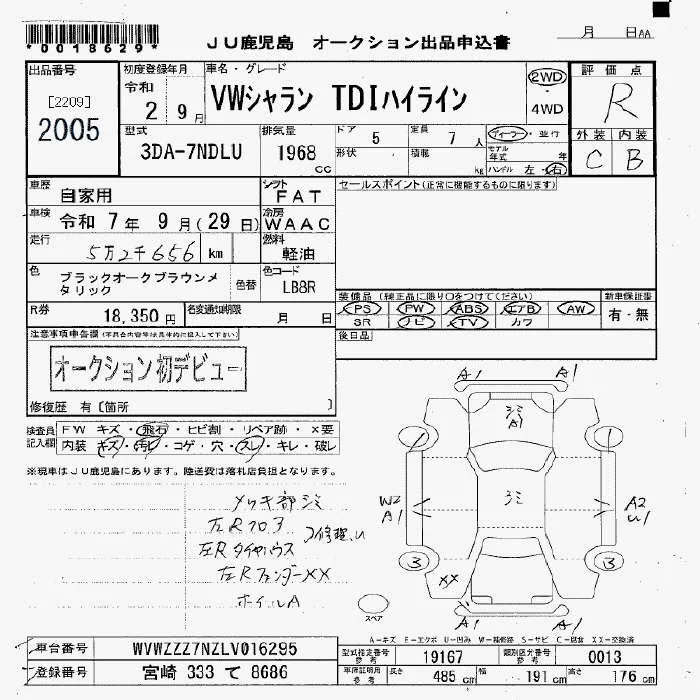 *0018629*
JU鹿児島 オークション出品申込書
月 日AA
出品番号
[2209]
2005
初度登録年月
令和
2 9月
車名・グレード
VWシャラン TDIハイライン
2WD
・
4WD
評価点
R
外装 内装
C B
型式
3DA-7NDLU
排気量
1968 cc
ドア 5
定員 7 人
形状
積載 kg
ディーラー・並行
モデル年式 年
ハンドル 左・右
車歴
自家用
シフト
FAT
車検
令和 7年 9月(29日)
冷房
WAAC
走行
5万2千656 km
燃料
軽油
色
ブラックオークブラウンメタリック
色替
色コード
LB8R
R券
18,350 円
名変通知期限
月 日
セールスポイント(正常に機能するものに限ります)
装備品(純正品に限り○をつけてください)
PS PW ABS エアB AW
SR ナビ TV カワ
新車保証書
有・無
後日品
注意事項申告欄(不具合内容等は具体的に記入して下さい)
オークション初デビュー
修復歴 有〔箇所 〕
検査員記入欄
FW キズ・飛石・ヒビ割・リペア跡・×要
内装 キズ・汚レ・コゲ・穴・スレ・キレ・破レ
※現車はJU鹿児島にあります。陸送費は落札店負担となります。
メッキ部シミ
左Rフロア
左Rタイヤハウス
修理、U
左RフェンダーXX
ホイルA
A1 A1
シミ
A1
1 1
W2
A1
シミ
A2
U1
3 3
XX
A1 A1
スペア
A-キズ E-エクボ U-凹み W-補修跡 S-サビ C-腐食 XX-交換済
車台番号
WVWZZZ7NZLV016295
登録番号
宮崎 333 て 8686
型式指定番号
参考
19167
類別区分番号
参考
0013
車体証明書
参考
長さ 485 cm
幅 191 cm
高さ 176 cm